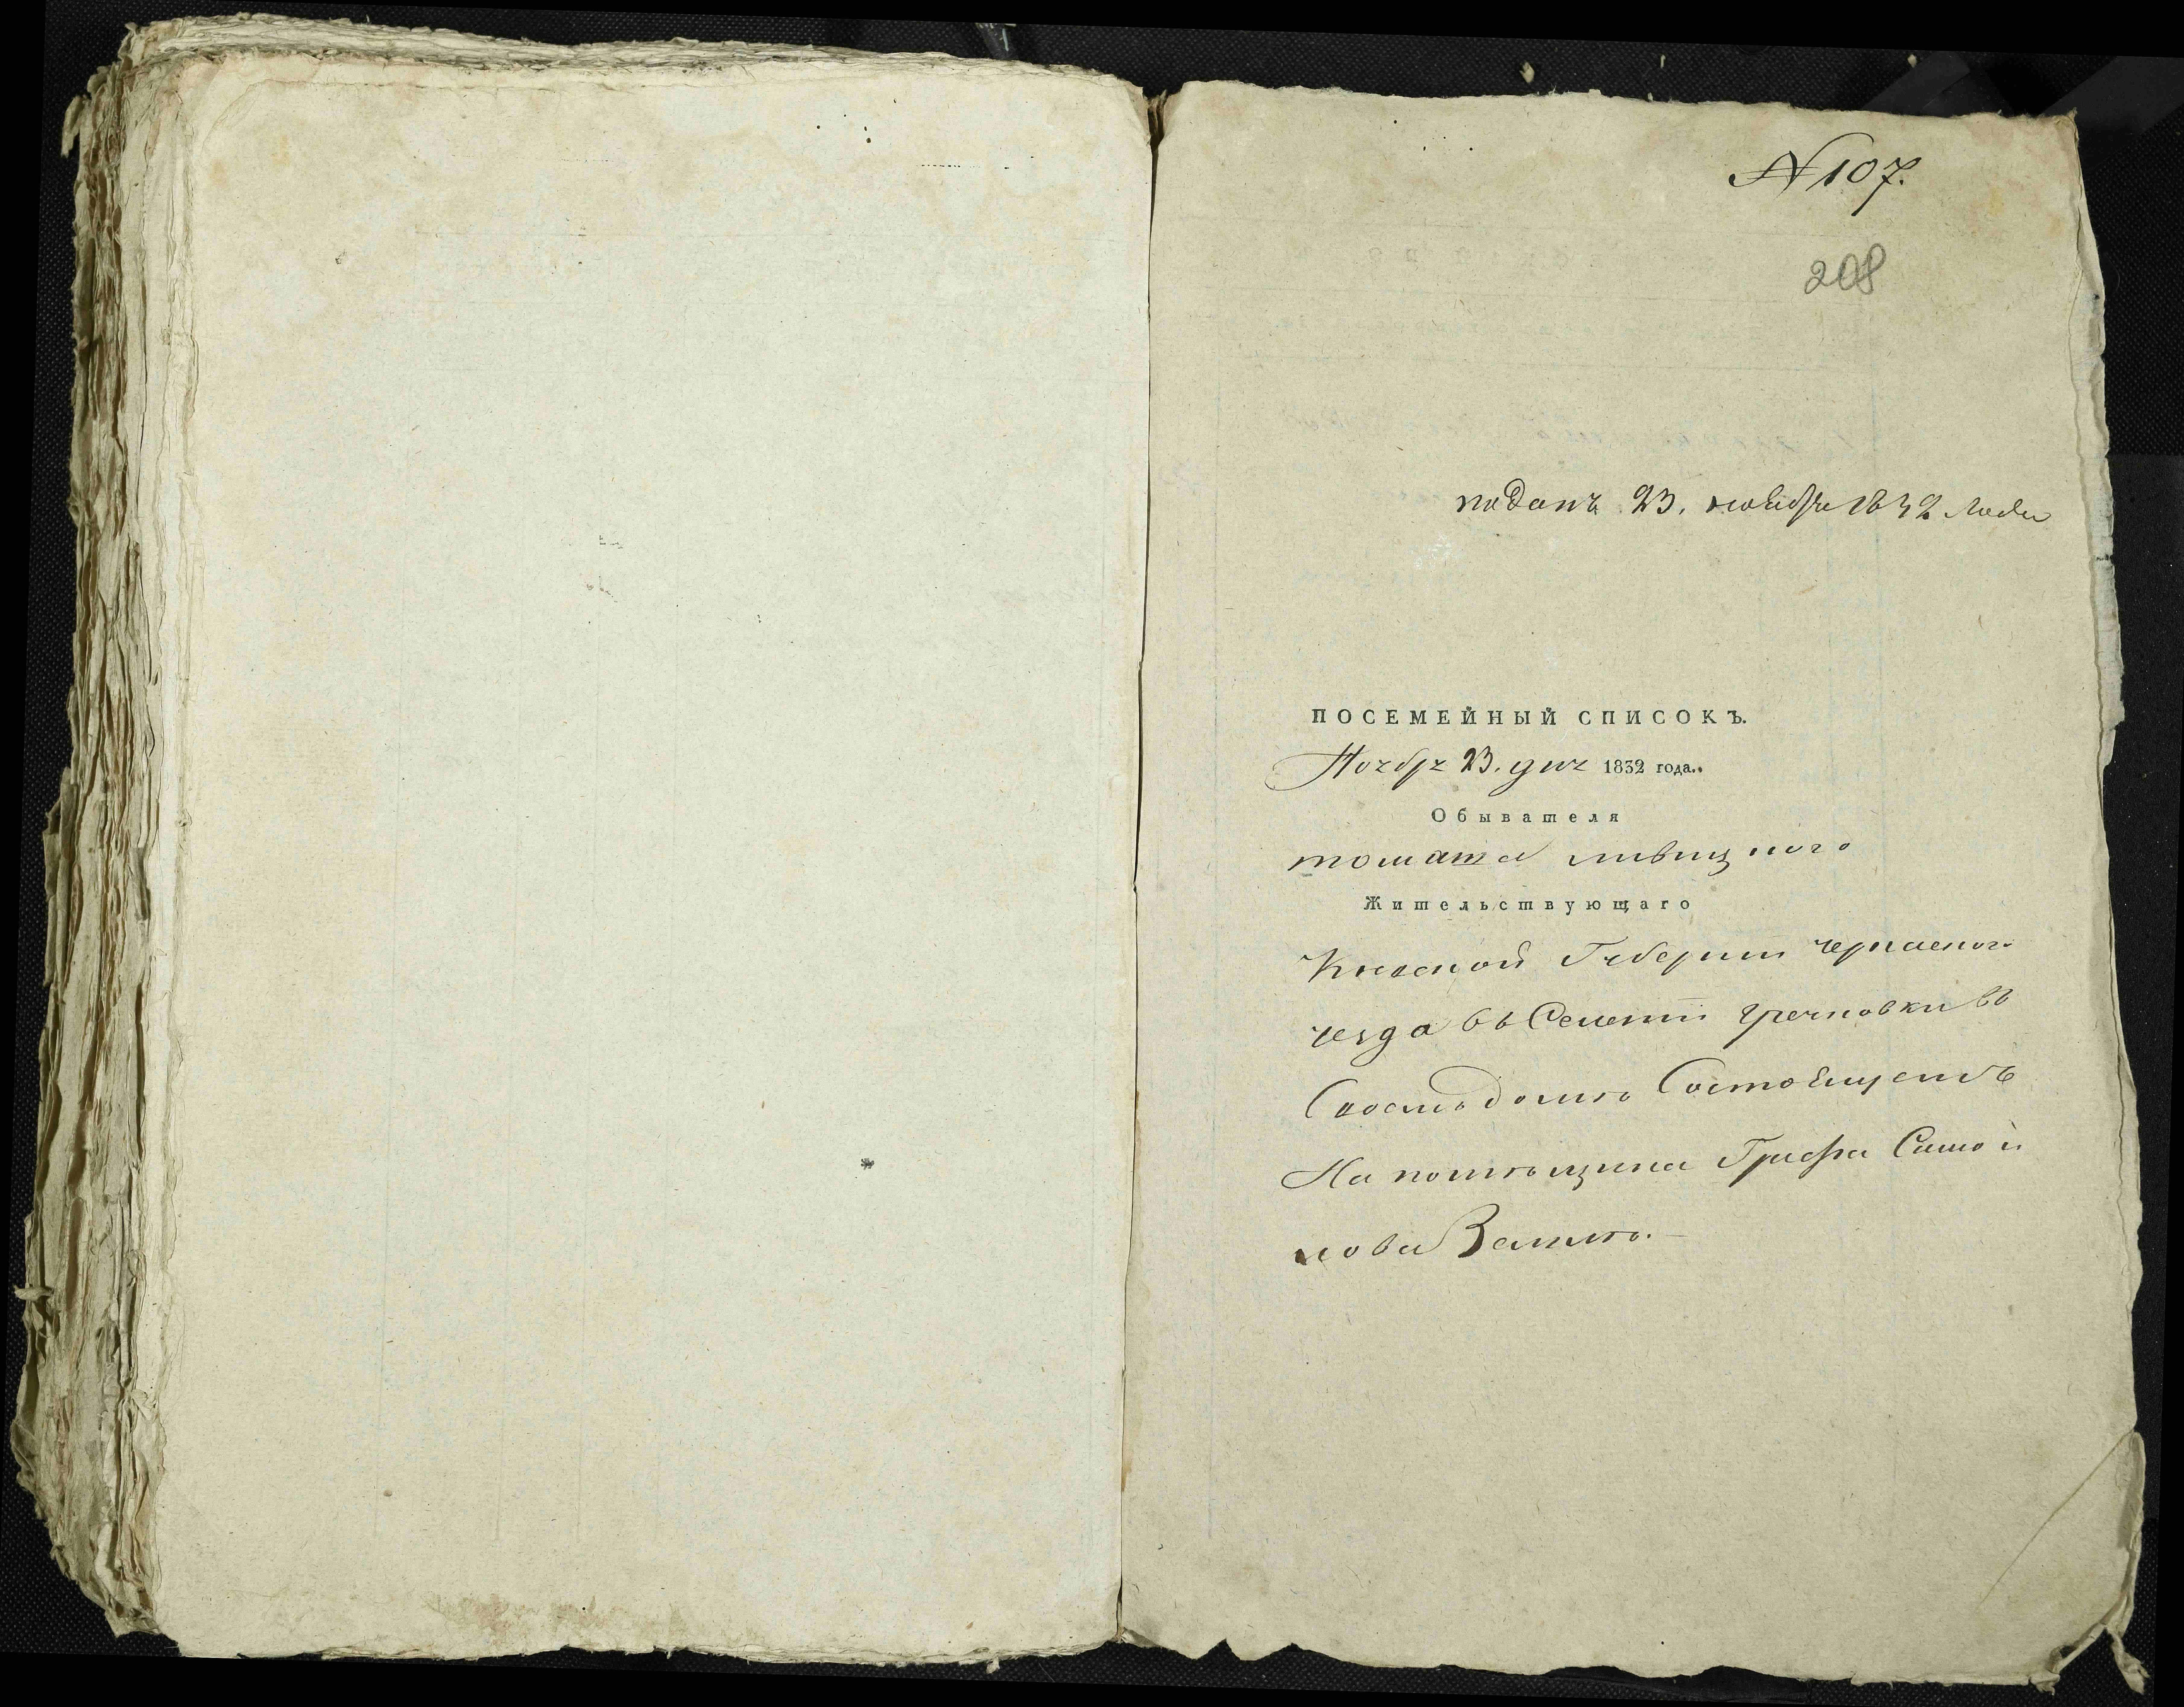 N 107.
208
поданъ 23. ноября 1832 года
ПОСЕМЕЙНЫЙ СПИСОКЪ.
Ноября 23. дня 1832 года.
Обывателя
томаша
Жительствующаго
Киевской Губернии черкаского
уезда въ Селении гречковки въ
Своемъ доме Состоящемъ
На помещика Графа Самой
лова Земле.